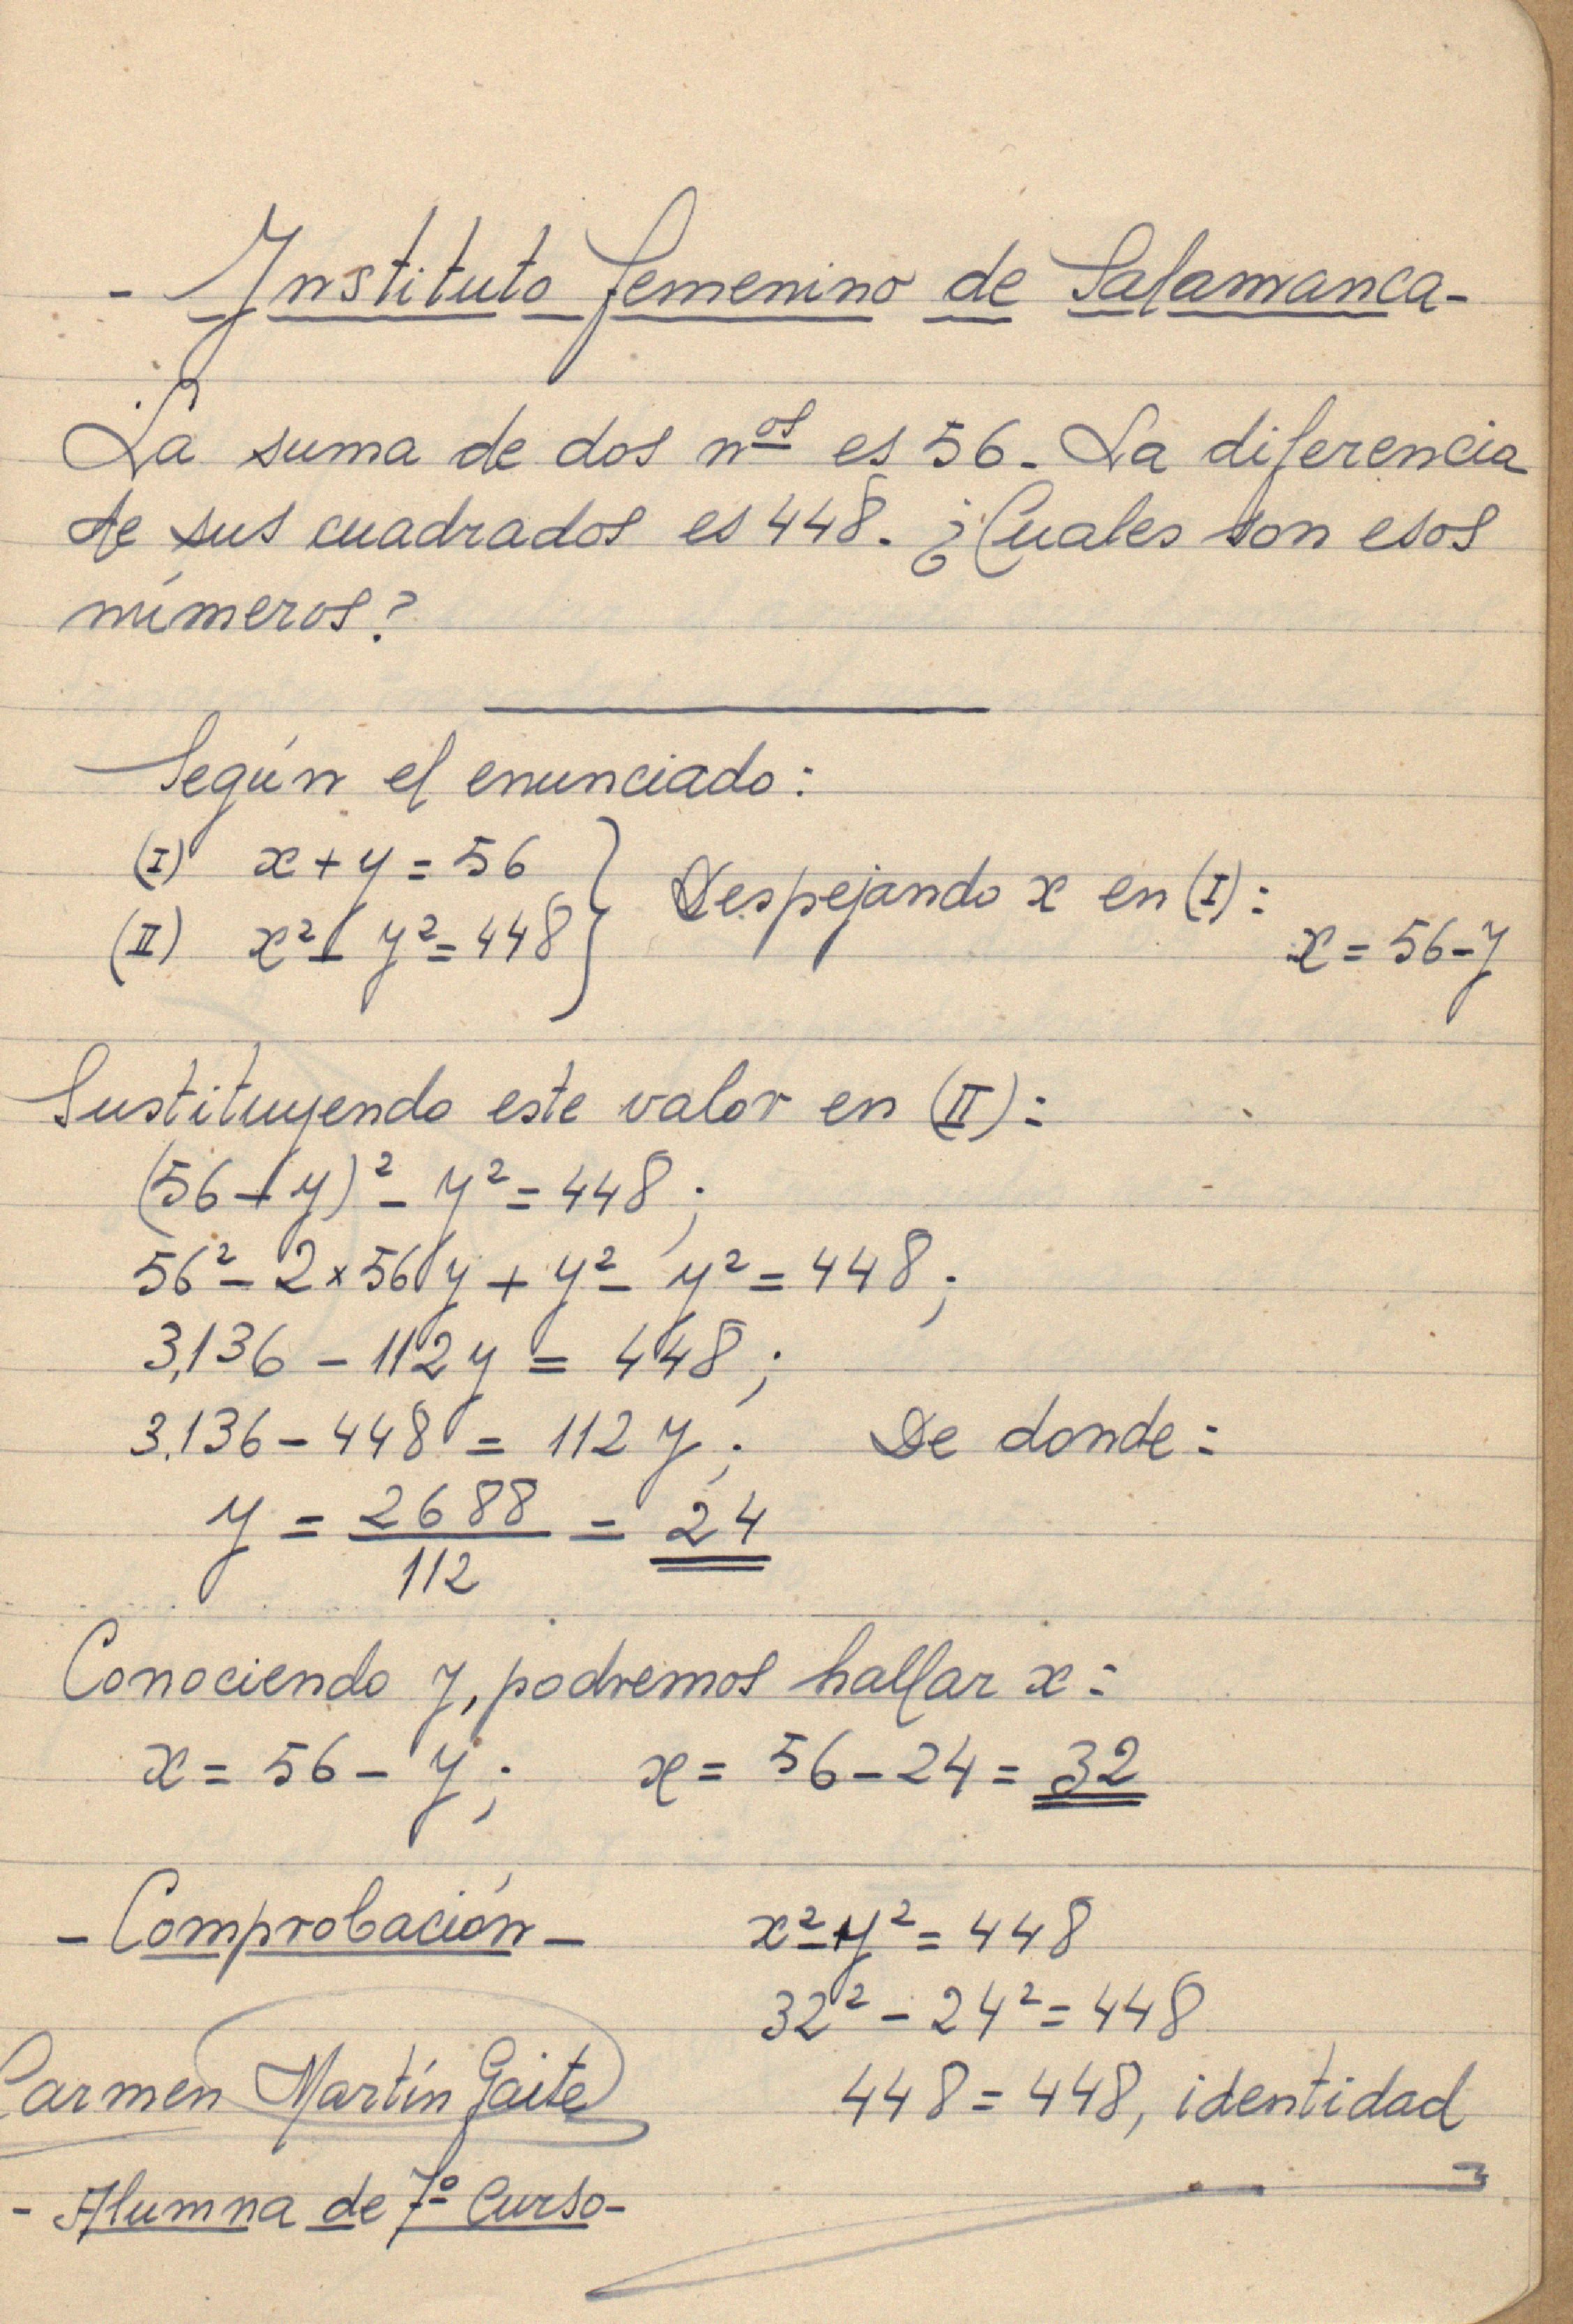 - Instituto femenino de Salamanca -
La suma de dos nos es 56. La diferencia
de sus cuadrados es 448. ¿Cuales son esos
números?
Según el enunciado:
(I) x + y = 56
(II) x² - y² = 448 } Despejando x en (I):
x = 56 - y
Sustituyendo este valor en (II):
(56 - y)² - y² = 448;
56² - 2 × 56 y + y² - y² = 448;
3,136 - 112 y = 448;
3.136 - 448 = 112 y; De donde:
y = 2688 / 112 = 24
Conociendo y, podremos hallar x:
x = 56 - y; x = 56 - 24 = 32
- Comprobación - x² - y² = 448
32² - 24² = 448
448 = 448, identidad
Carmen Martín Gaite
- Alumna de 7º Curso -